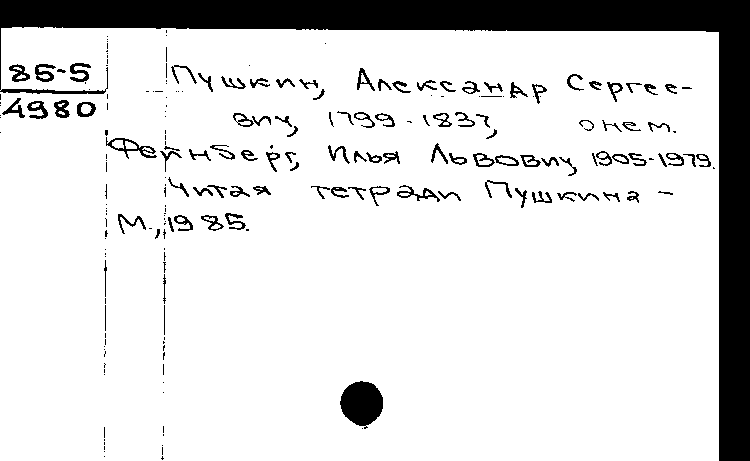 85-5
4980
Пушкин, Александр Сергее-
вич, 1799-1837, о нем.
Фейнберг, Илья Львович, 1905-1979.
Читая тетради Пушкина -
М., 1985.